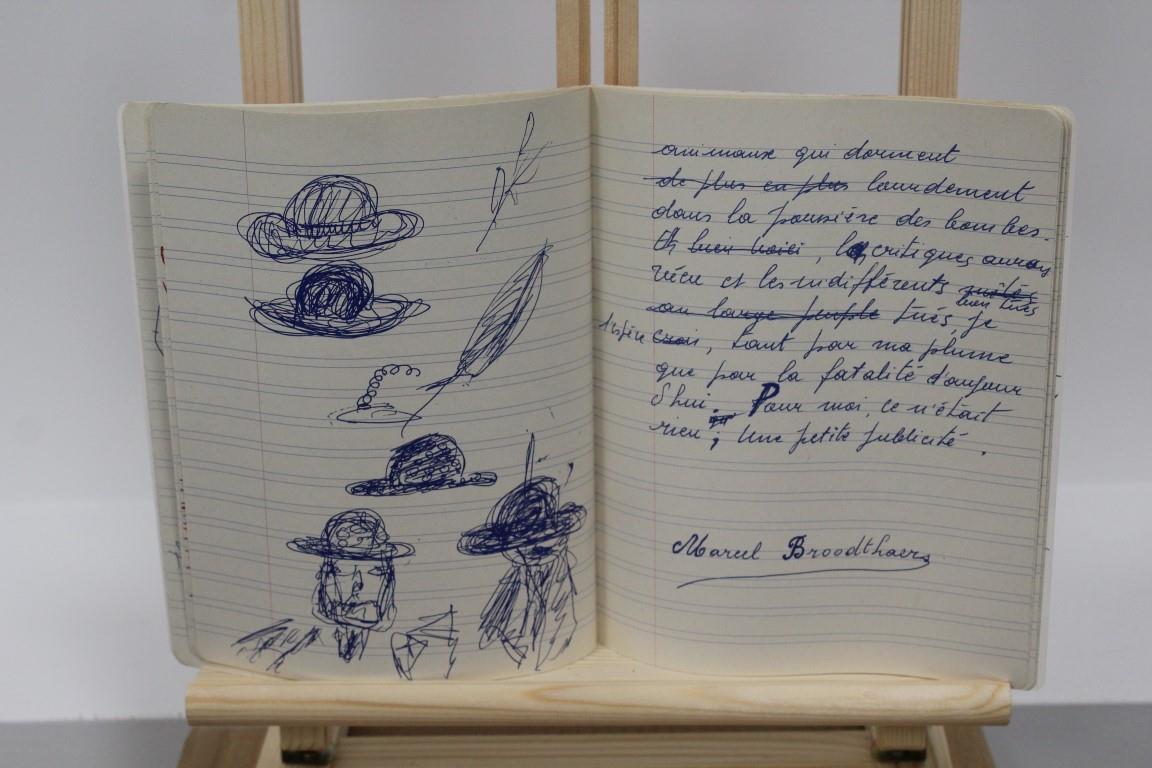 animaux qui dorment
de plus en plus lourdement
dans la poussière des bombes.
Et bien voici, les critiques auront
vécu et les indifférents mêlés
bien tués
au large peuple tués, je
crois, tant par ma plume
J'espère
que par la fatalité d'aujour
d'hui. Pour moi, ce n'était
rien; Une petite publicité.
Marcel Broodthaers